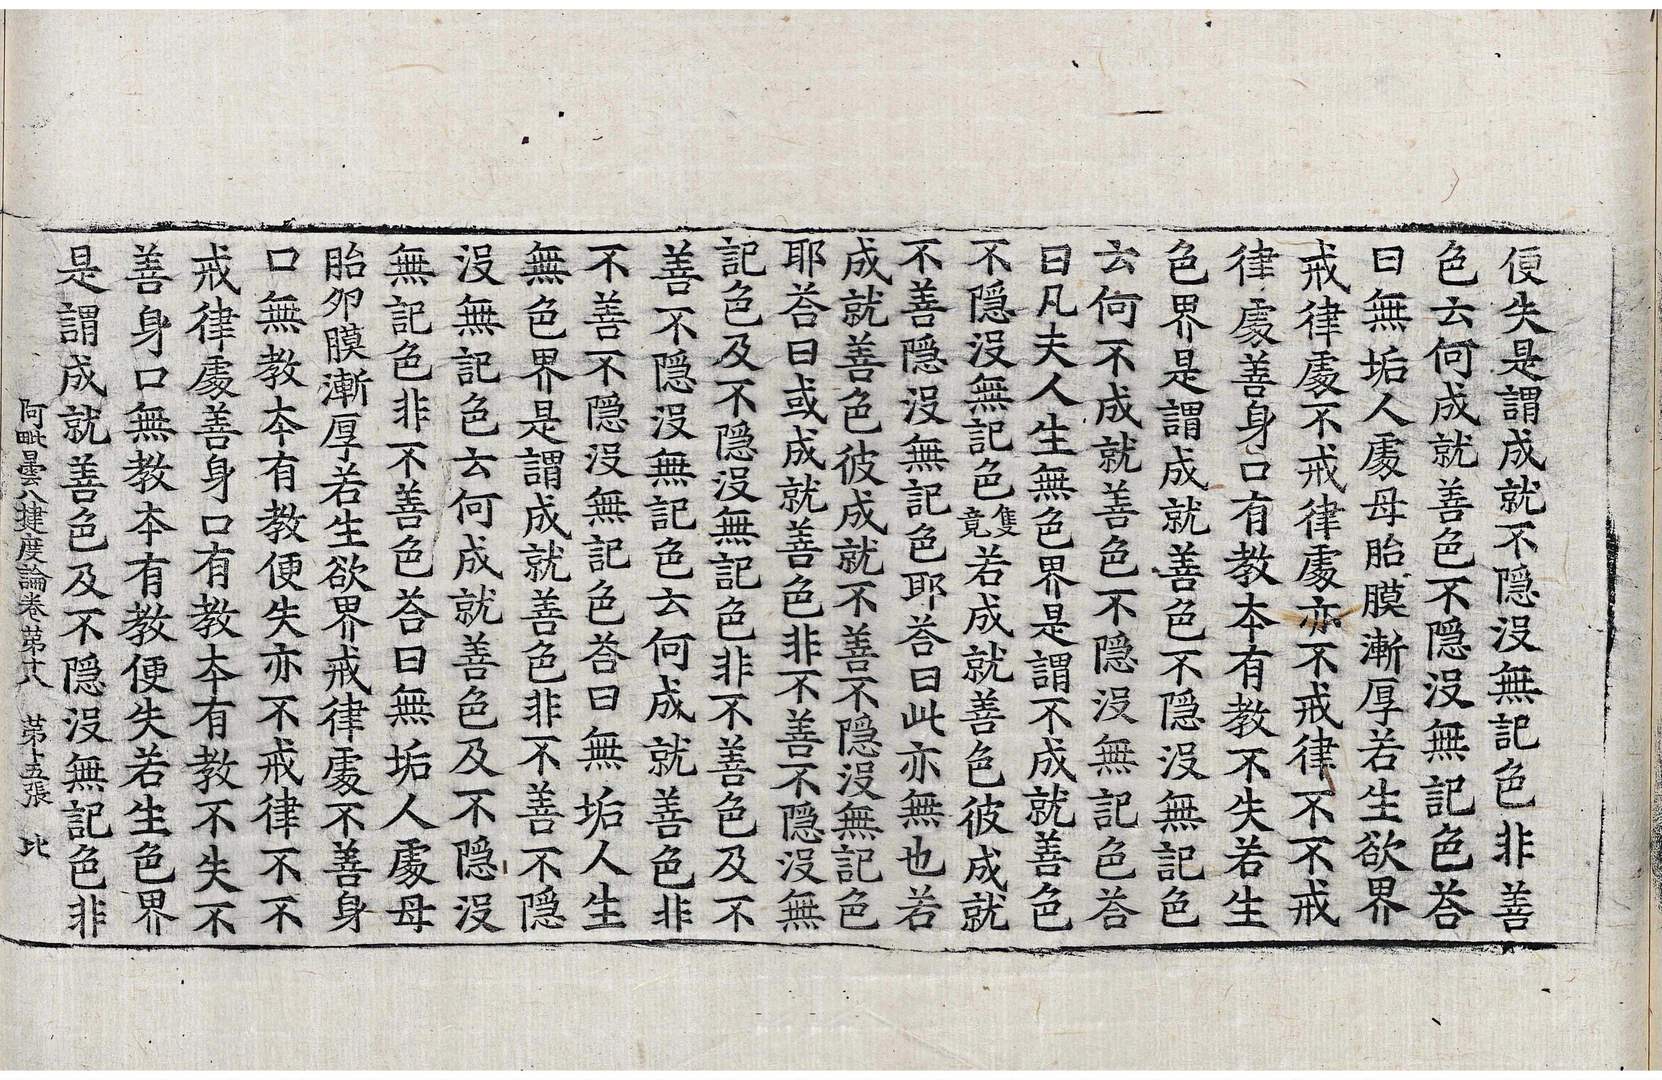 便失是謂成就不隱沒無記色非善
色云何成就善色不隱沒無記色荅
曰無垢人處母胎膜漸厚若生欲界
戒律處不戒律處亦不戒律不不戒
律處善身口有教本有教不失若生
色界是謂成就善色不隱沒無記色
云何不成就善色不隱沒無記色荅
曰凡夫人生無色界是謂不成就善色
不隱沒無記色隻竟若成就善色彼成就
不善隱沒無記色耶荅曰此亦無也若
成就善色彼成就不善不隱沒無記色
耶荅曰或成就善色非不善不隱沒無
記色及不隱沒無記色非不善色及不
善不隱沒無記色云何成就善色非
不善不隱沒無記色荅曰無垢人生
無色界是謂成就善色非不善不隱
沒無記色云何成就善色及不隱沒
無記色非不善色荅曰無垢人處母
胎卵膜漸厚若生欲界戒律處不善身
口無教本有教便失亦不戒律不不
戒律處善身口有教本有教不失不
善身口無教本有教便失若生色界
是謂成就善色及不隱沒無記色非
阿毗曇八揵度論卷第十八　第十五張　比